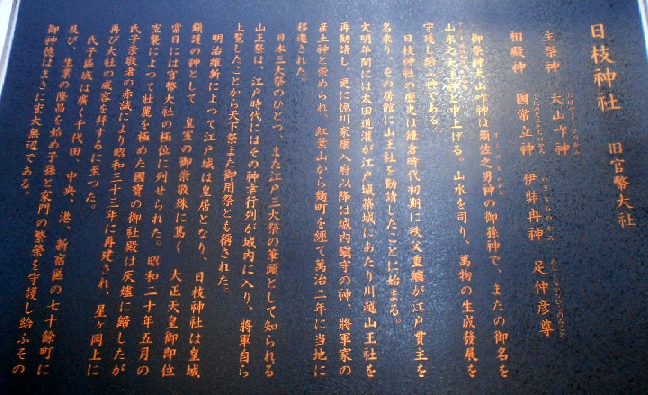 日枝神社　旧官幣大社
主祭神　大山咋神
相殿神　國常立神　伊弉冉神　足仲彦尊
御祭神大山咋神は須佐之男神の御孫神で、またの御名を
山末之大主神と申上げる。山水を司り、萬物の生成發展を
守護し給ふ神である。
日枝神社の歴史は鎌倉時代初期に秩父重継が江戸貫主を
名乗り、その居館に山王社を勧請したことに始まる。
文明年間には太田道灌が江戸城築城にあたり川越山王社を
再勧請し、更に徳川家康入府以降は城内鎮守の神　將軍家の
産土神と崇められ、紅葉山から麹町を經て萬治二年に当地に
移遷された。
日本三大祭のひとつ、また江戸三大祭の筆頭として知られる
山王祭は、江戸時代にはその神幸行列が城内に入り、將軍自ら
上覧したことから天下祭また御用祭とも稱された。
明治維新によって江戸城は皇居となり、日枝神社は皇城
鎮護の神として　皇室の御崇敬殊に篤く　大正天皇御即位
當日には官幣大社の極位に列せられた。昭和二十年五月の
空襲によって壮麗を極めた國寶の御社殿は灰燼に歸したが
氏子崇敬者の赤誠により昭和三十三年に再建され、星ヶ岡上に
再び大社の威容を拝するに至った。
氏子區域は廣く千代田、中央、港、新宿區の七十餘町に
及び、生業の隆昌を始め子孫と家門の繁榮を守護し給ふその
御神徳はまさに宏大無辺である。